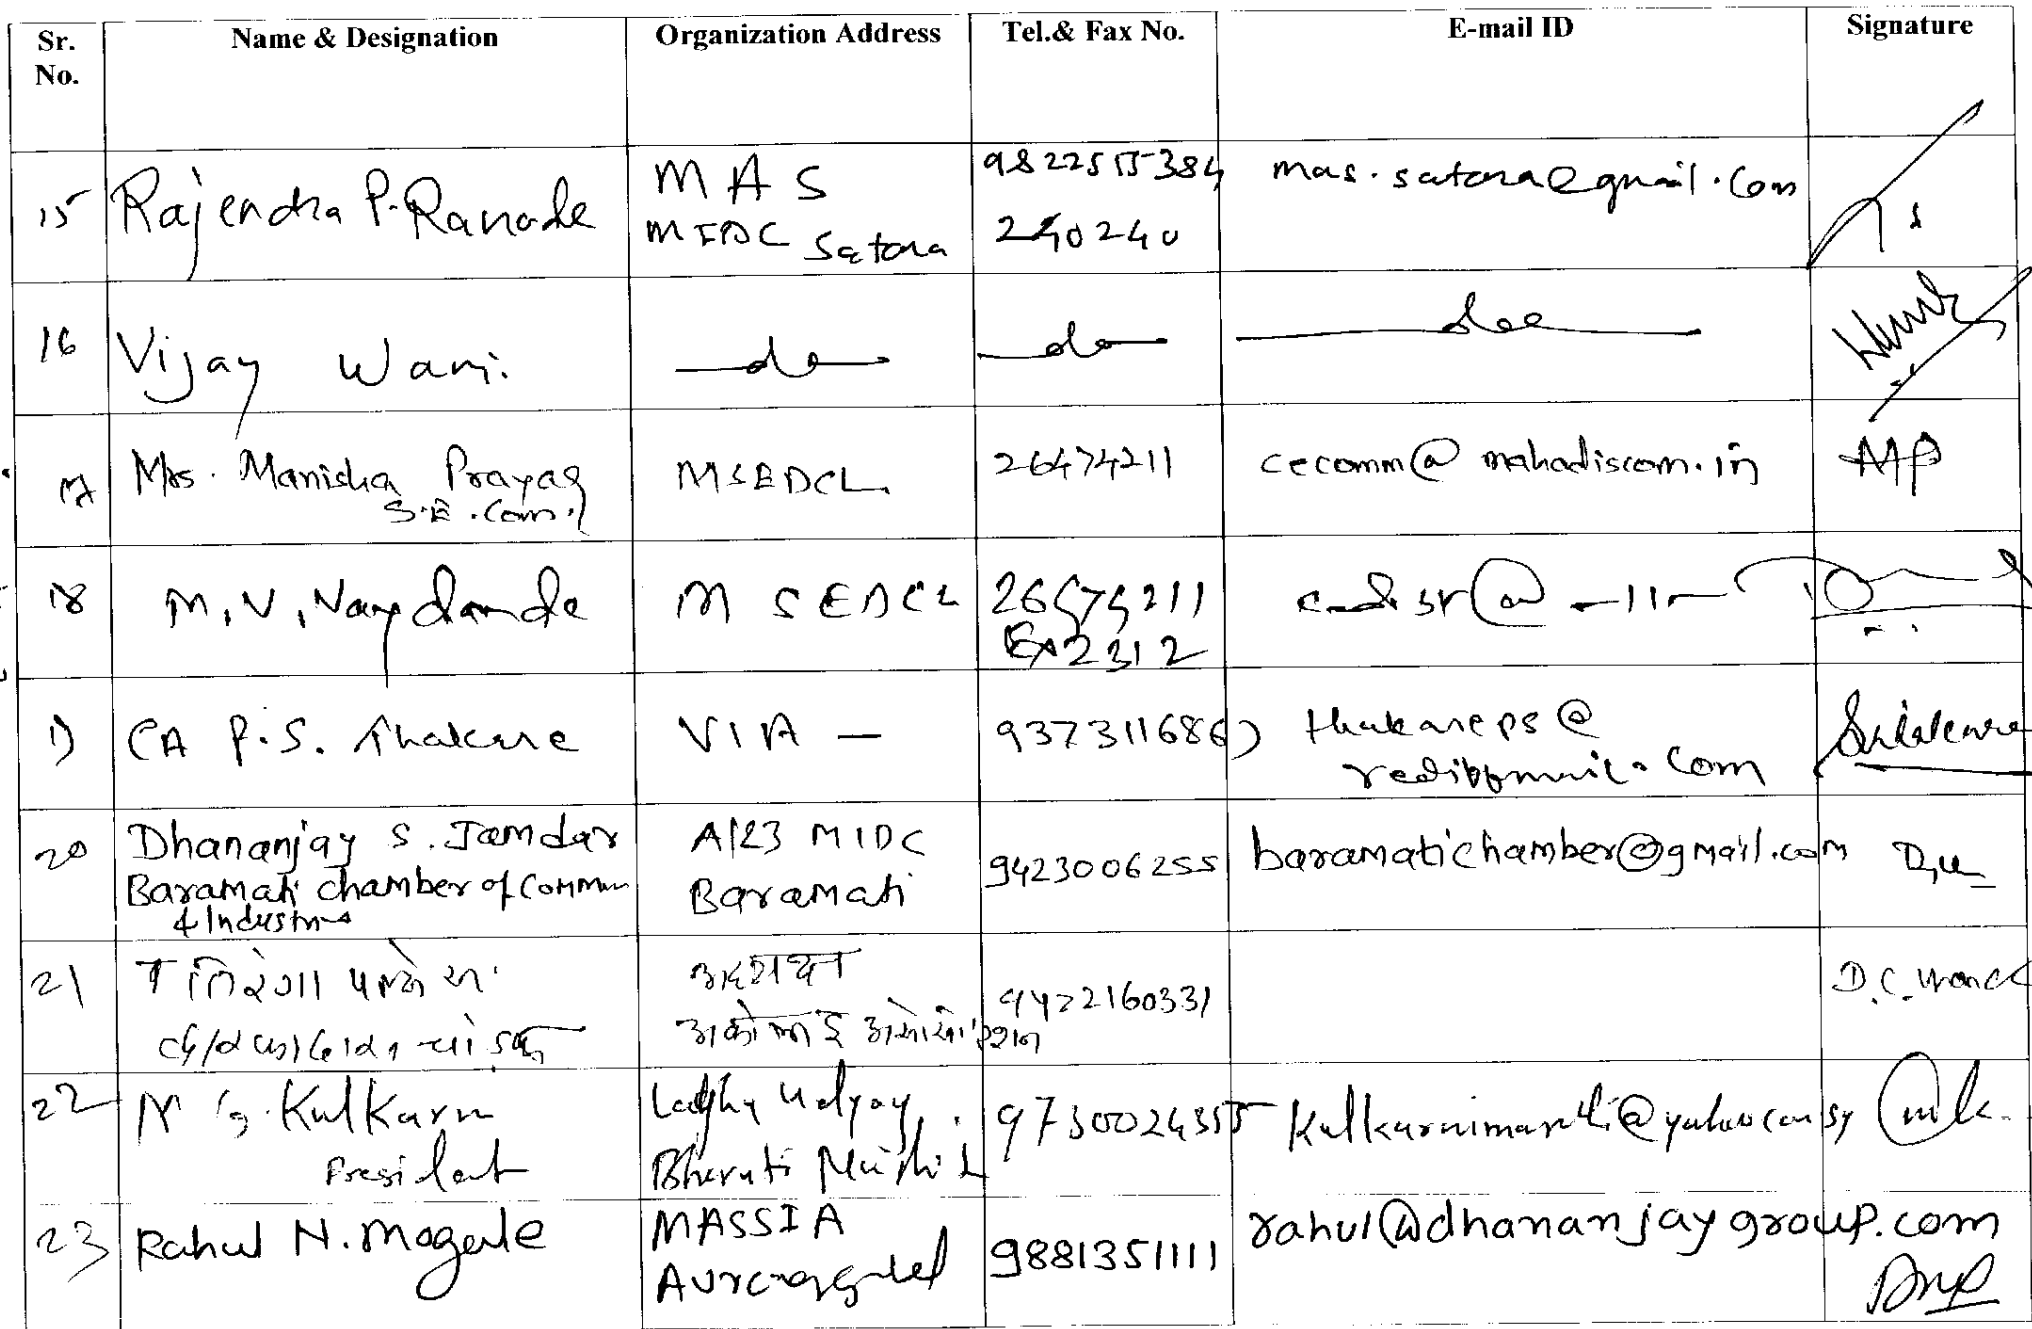 Sr. No.
Name & Designation
Organization Address
Tel.& Fax No.
E-mail ID
Signature
15 Rajendra P. Ranade
MAS
MIDC Satara
9822515384
240240
mas.satara@gmail.com
16 Vijay Wani.
—do—
—do—
—do—
17 Mrs. Manisha Prayag
S.E. Com.
MSEDCL
26474211
cecomm@mahadiscom.in
MP
18 M.V. Naydande
MSEDCL
26474211
Ex 2312
@ —11—
19 CA P.S. Thakare
VIA —
9373116867
thakareps@
rediffmail.com
20 Dhananjay S. Jamdar
Baramati chamber of Commun
& Industries
A/23 MIDC
Baramati
9423006255
baramatichamber@gmail.com
21
9422160331
22 M G. Kulkarni
President
Laghu Udyog
Bharati
9730024355
23 Rahul N. Mogale
MASSIA
Aurangabad
9881351111
rahul@dhananjaygroup.com